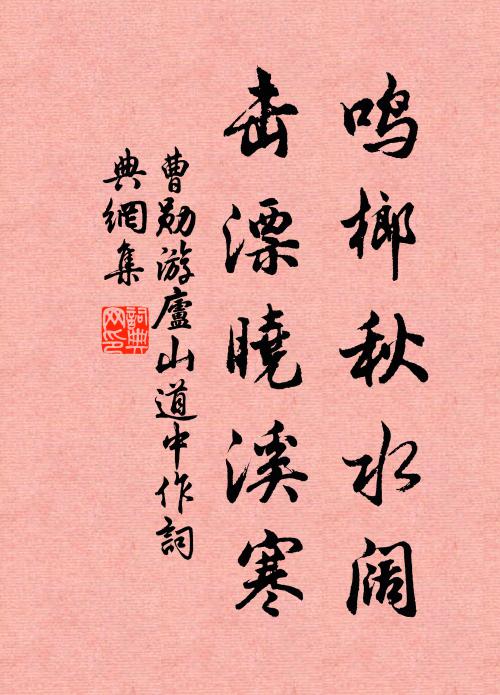 鸣榔秋水阔
击漂晓溪寒
曹勋游廬山道中作詞
典網集
詞典網印